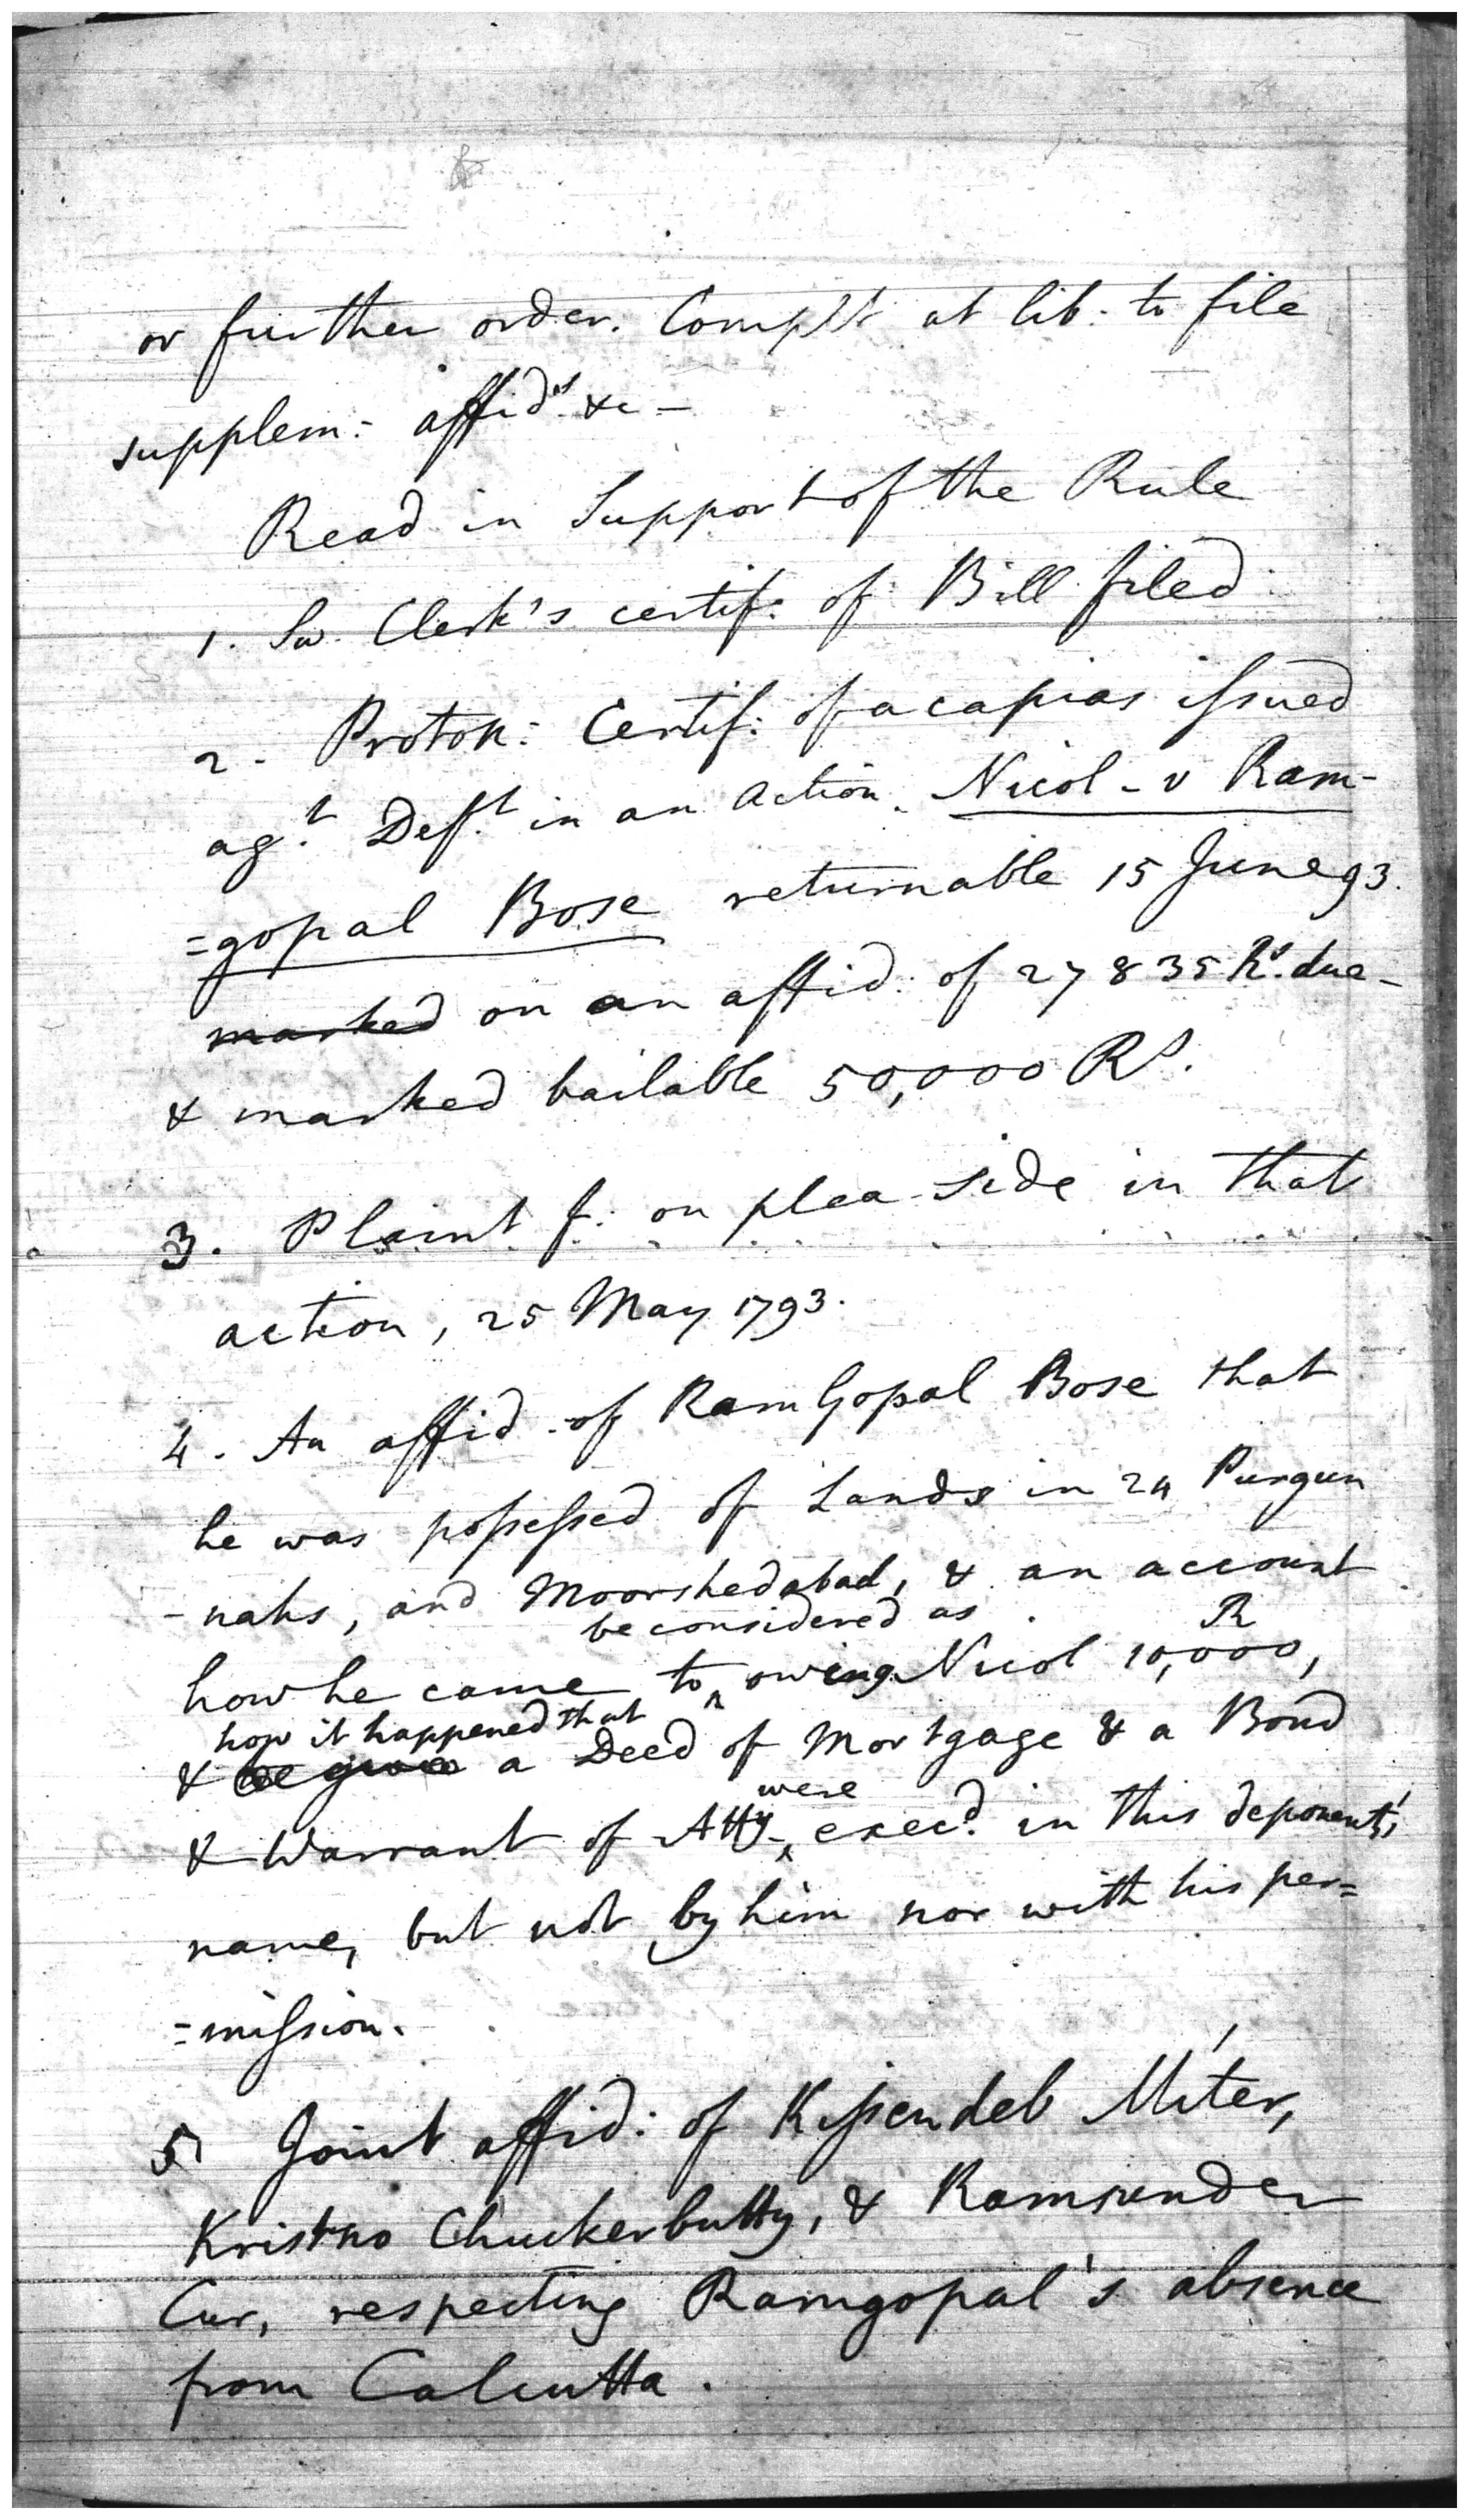 or further order. Complt at lib: to file
supplem: affidts &c -
Read in Support of the Rule
1. Sw. Clerk's certif: of Bill filed
2. Proton: Certif: of a capias issued
agt. Deft. in an Action. Nicol - v Ram-
=gopal Bose returnable 15 June 93.
marked on an affid: of 27835 Rs. due -
& marked bailable 50,000 Rs.
3. Plaint f: on plea side in that
action, 25 May 1793.
4. An affid. of RamGopal Bose that
he was possessed of Lands in 24 Purgun
-nahs, and Moorshedabad, & an account
be considered as R
how he came to owing Nicol 10,000,
how it happened that
& he gave a Deed of Mortgage & a Bond
were
& Warrant of Atty execd. in this deponent's
name, but not by him nor with his per=
=mission.
5 Joint affid: of Kissendeb Miter,
Kristno Chuckerbutty, & Ramsunder
Cur, respecting Ramgopal's absence
from Calcutta.